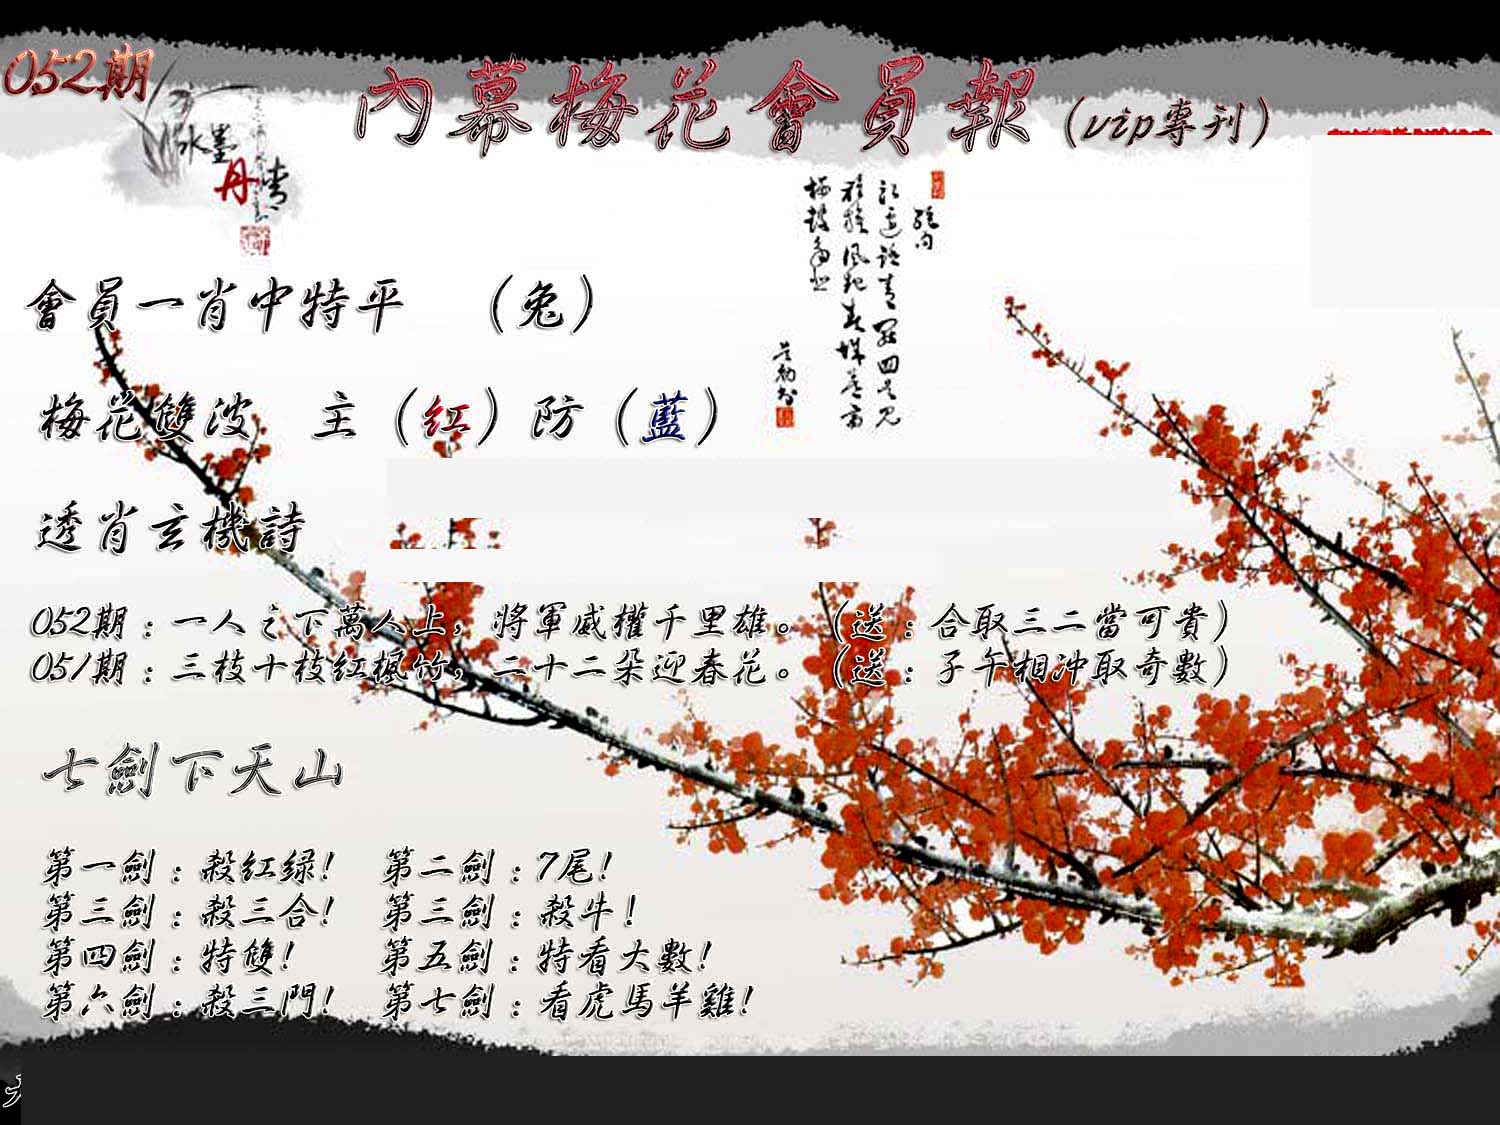 052期
內幕梅花會員報（vip專刊）
水墨
丹青
會員一肖中特平　（兔）
梅花雙波　主（紅）防（藍）
透肖玄機詩
052期：一人之下萬人上，將軍威權千里雄。（送：合取三二當可貴）
051期：三枝十枝紅楓竹，二十二朵迎春花。（送：子午相冲取奇數）
七劍下天山
第一劍：殺紅绿!　第二劍：7尾!
第三劍：殺三合!　第三劍：殺牛!
第四劍：特雙!　第五劍：特看大數!
第六劍：殺三門!　第七劍：看虎馬羊雞!